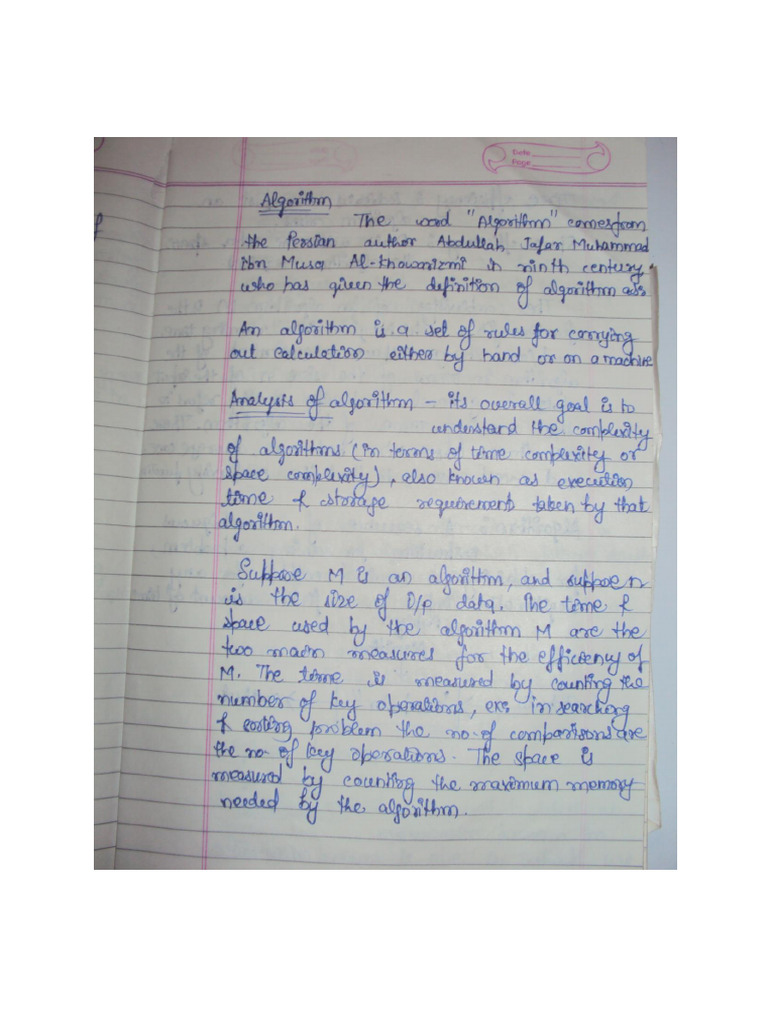 Date
Page
Algorithm
The word "Algorithm" comes from
the Persian author Abdullah Jafar Muhammad
ibn Musa Al-khowarizmi in ninth century
who has given the definition of algorithm as:
An algorithm is a set of rules for carrying
out calculation either by hand or on a machine
Analysis of algorithm – its overall goal is to
understand the complexity
of algorithms (in terms of time complexity or
space complexity), also known as execution
time & storage requirement taken by that
algorithm.
Suppose M is an algorithm, and suppose n
is the size of D/p data. The time &
space used by the algorithm M are the
two main measures for the efficiency of
M. The time is measured by counting the
number of key operations, ex: in searching
& sorting problem the no. of comparisons are
the no. of key operations. The space is
measured by counting the maximum memory
needed by the algorithm.